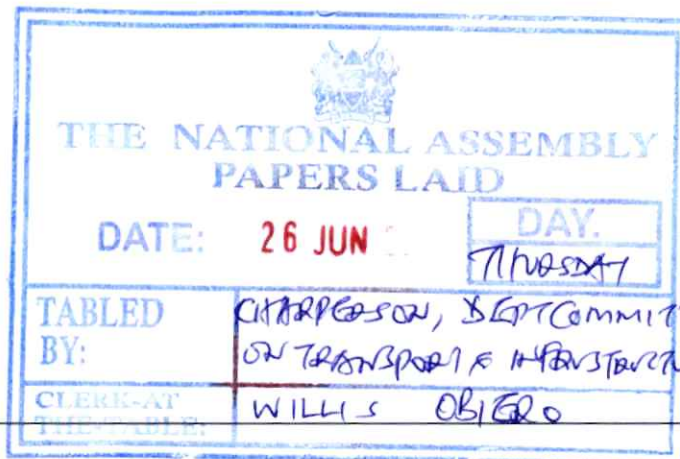 THE NATIONAL ASSEMBLY
PAPERS LAID
DATE: 26 JUN
DAY.
THURSDAY
TABLED BY:
CHAIRPERSON, DEPT COMMIT
ON TRANSPORT &
CLERK-AT THE-TABLE:
WILLIS OBIERO